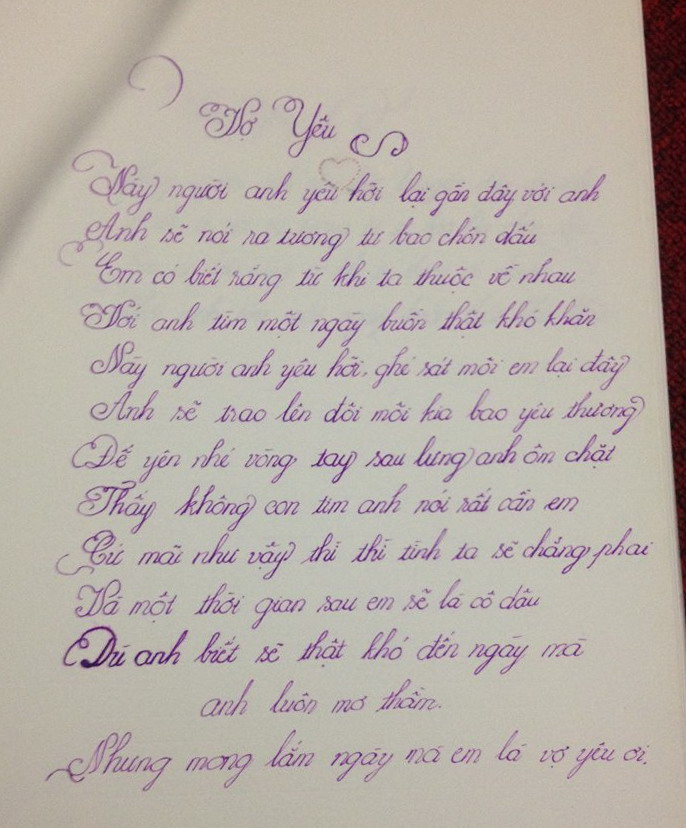 Vợ Yêu
Này người anh yêu hỡi lại gần đây với anh
Anh sẽ nói ra tương tư bao chôn dấu
Em có biết rằng từ khi ta thuộc về nhau
Với anh tìm một ngày buồn thật khó khăn
Này người anh yêu hỡi, ghé sát môi em lại đây
Anh sẽ trao lên đôi môi kia bao yêu thương
Để yên nhé vòng tay sau lưng anh ôm chặt
Thấy không con tim anh nói rất cần em
Cứ mãi như vậy thì thì tình ta sẽ chẳng phai
Và một thời gian sau em sẽ là cô dâu
Dù anh biết sẽ thật khó đến ngày mà
anh luôn mơ thầm.
Nhưng mong lắm ngày mà em là vợ yêu ơi.